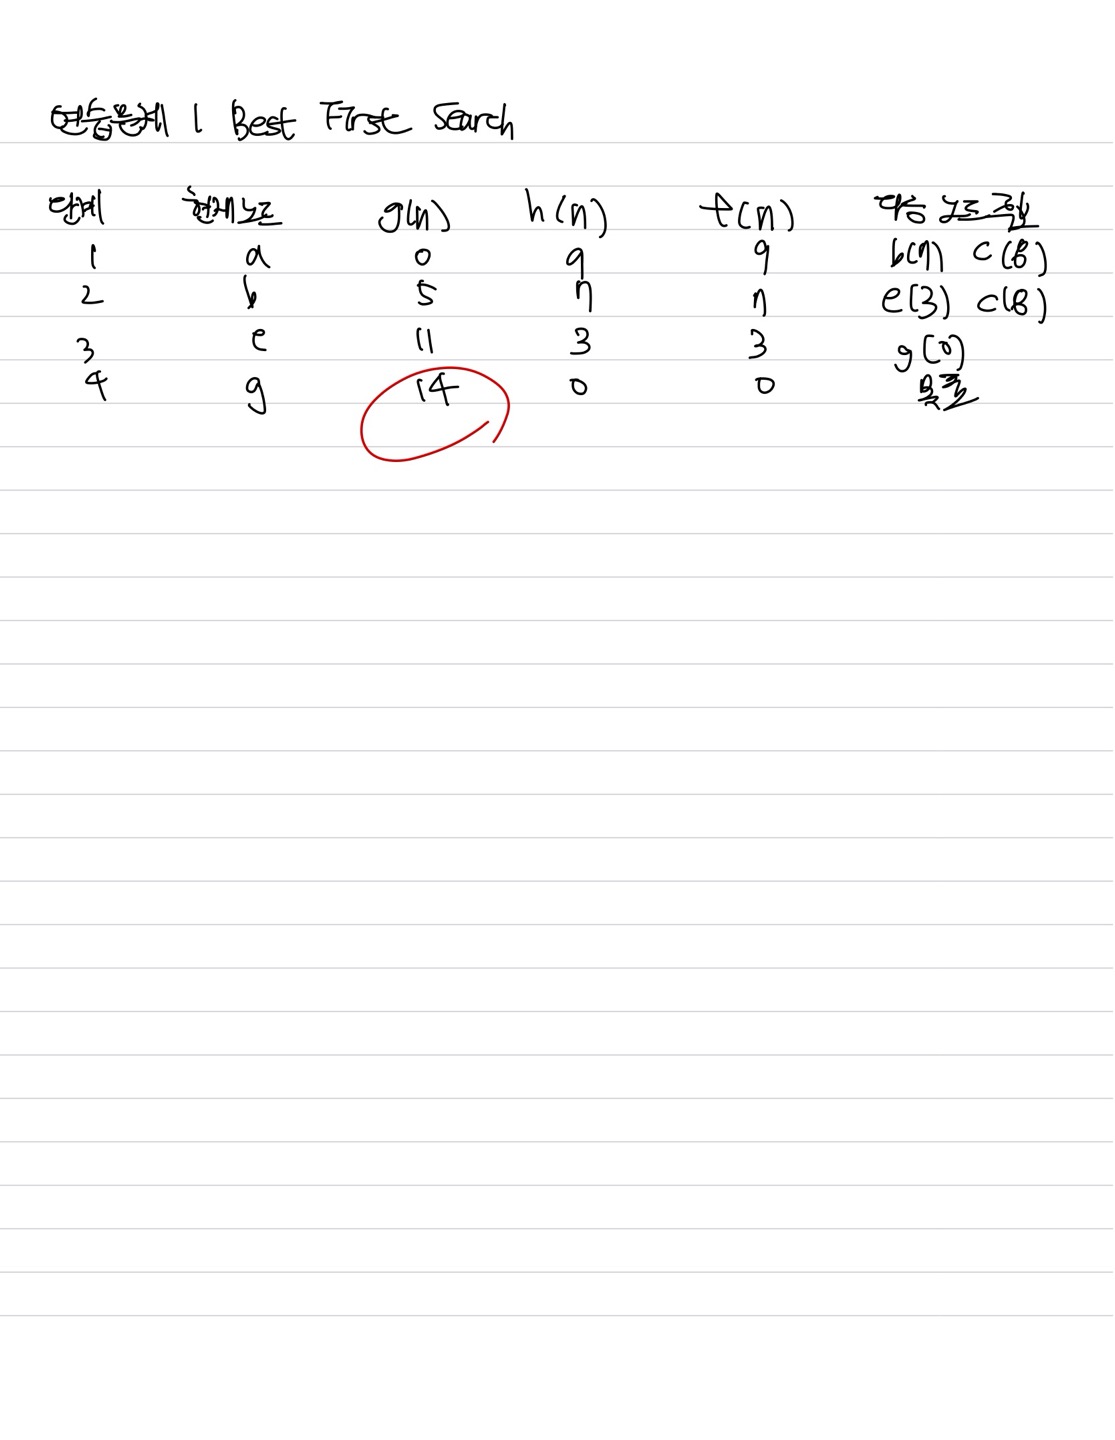 연습문제 1 Best First Search
단계 현재노드 g(n) h(n) f(n) 다음 노드 후보
1 a 0 9 9 b(7) c(8)
2 b 5 7 7 e(3) c(8)
3 e 11 3 3 g(0)
4 g 14 0 0 목표